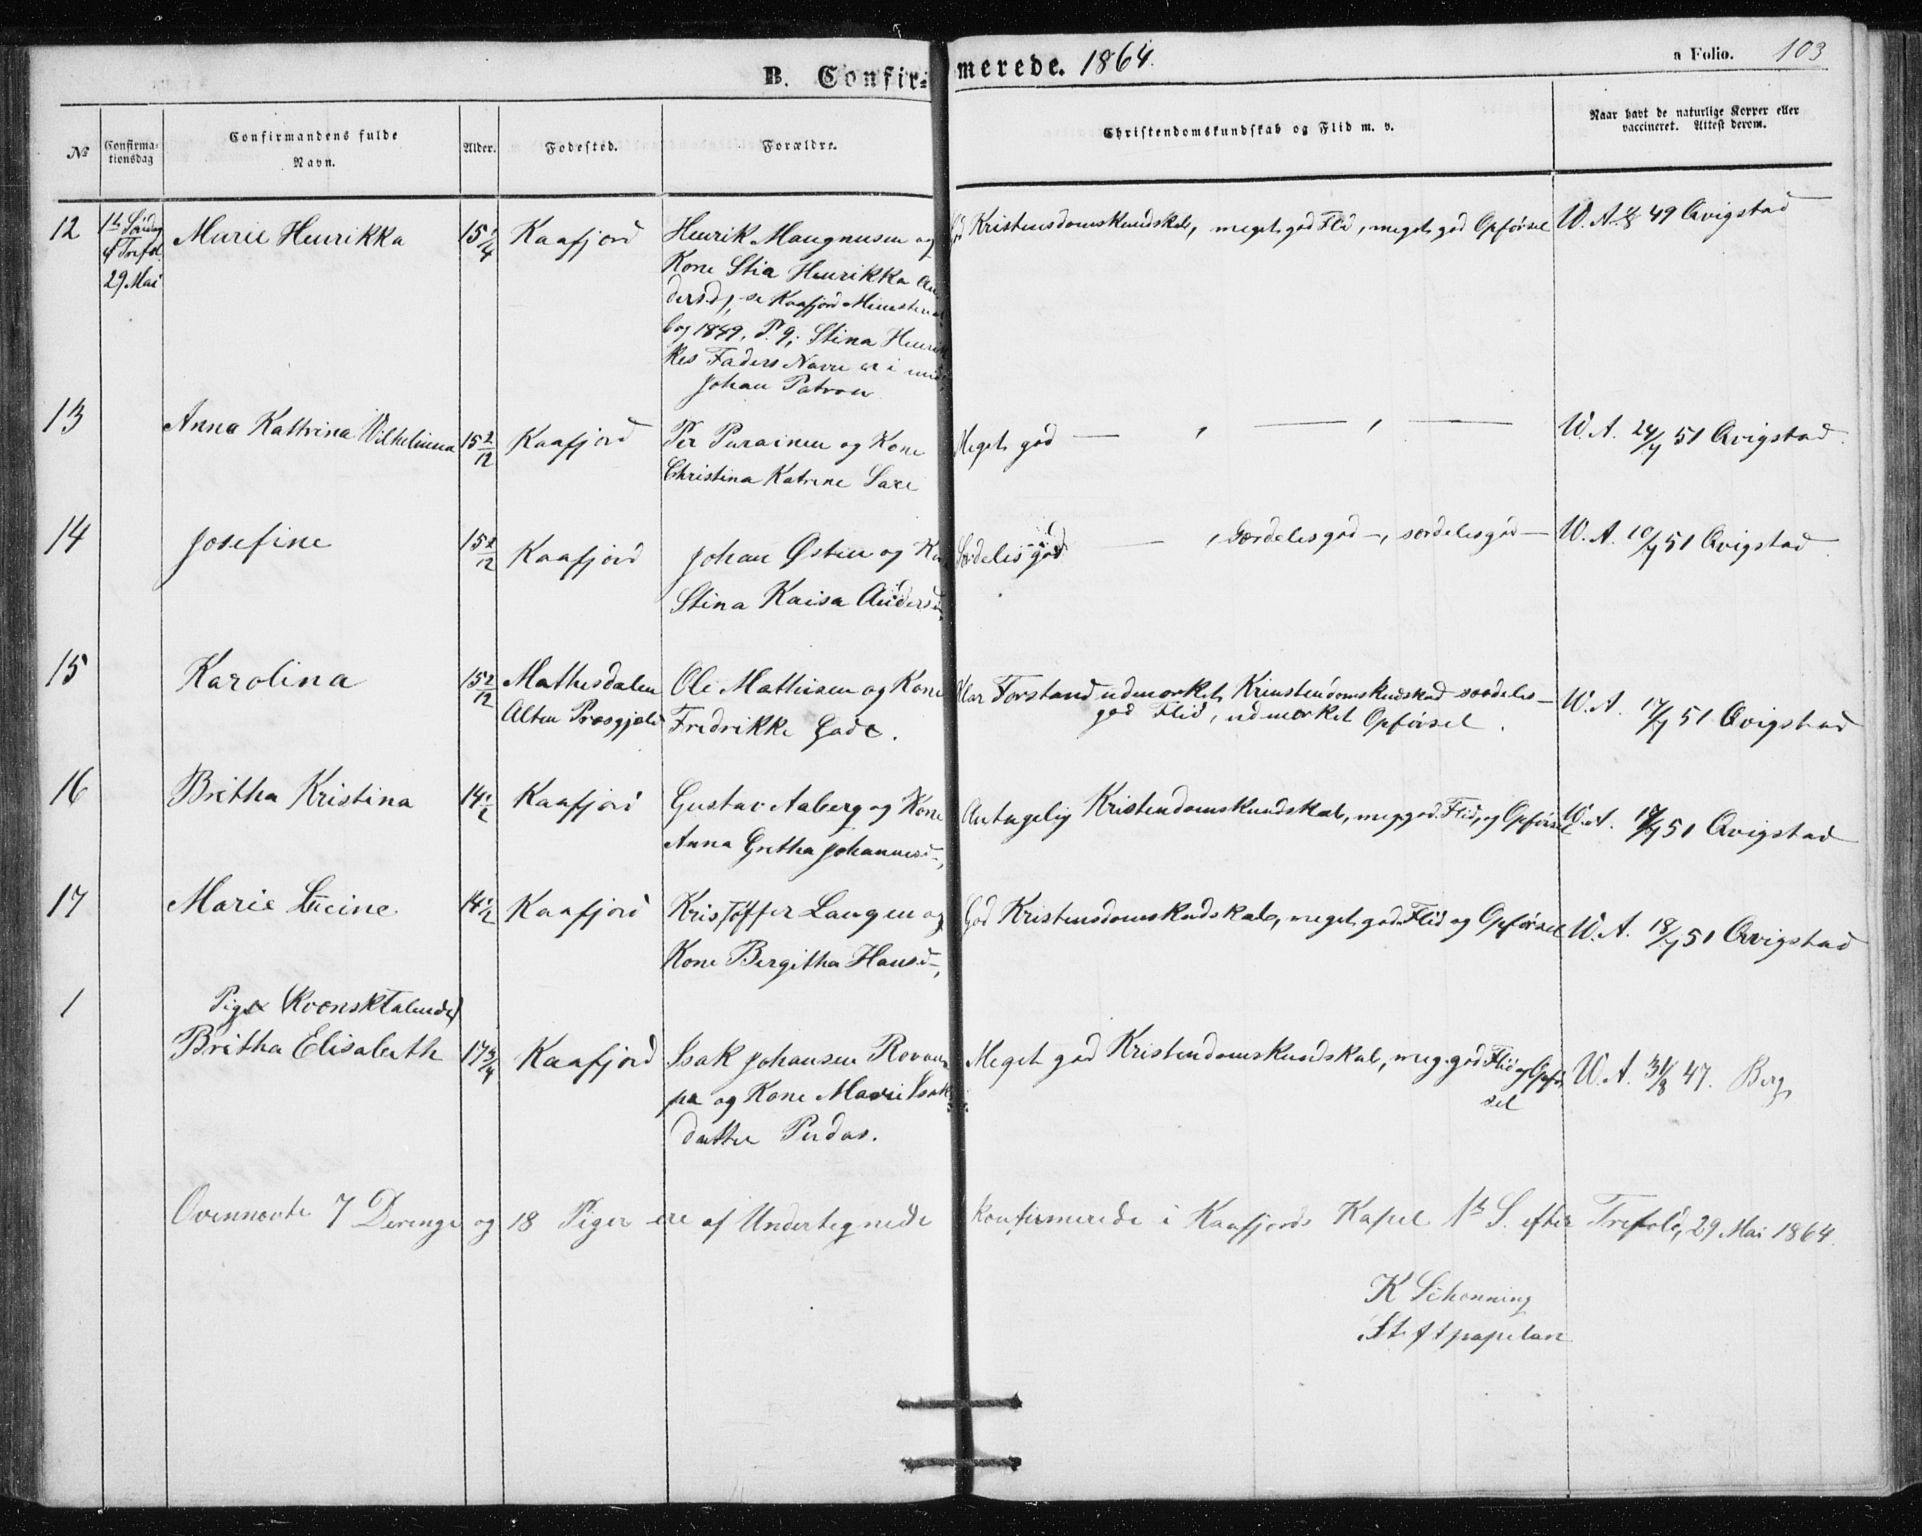 B. Confirmerede. 1864.
a Folio. 103
№
Confirmationsdag
Confirmandens fulde Navn.
Alder.
Fødested.
Forældre.
Christendomskundskab og Flid m. v.
Naar havt de naturlige Kopper eller vaccineret. Attest derom.
12 1ste Søndag Marie Henrikka 15 1/4 Kaafjord Henrik Maugnusen og Kristendomskundskab, meget god Flid, meget god Opførsel W. A. 49 Qvigstad
ef Trefol. Kone Stia Henrikka An
29 Mai dersd, se Kaafjord Ministerial
bog 1849, P. 9; Stina Henrik
kes Faders Navn er i
Johan Patron
13 Anna Kathrina Wilhelmina 15 2/12 Kaafjord Per Purainen og Kone Meget god — , — , — W. A. 24/7 51 Qvigstad.
Christina Katrine Sare
14 Josefine 15 2/12 Kaafjord Johan Østen og Særdeles god — , Særdeles god —, særdeles god — W. A. 10/7 51 Qvigstad.
Stina Kaisa Andersd
15 Karolina 15 2/12 Mathisdalen Ole Mathisen og Kone Klar Forstand udmærket Kristendomskundskab særdeles W. A. 17/7 51 Qvigstad
Alten Præsgjeld Fredrikke Gade. god Flid, udmærket Opførsel.
16 Britha Kristina 14 1/2 Kaafjord Gustav Aaberg og Kone Antagelig Kristendomskundskab, meg. god Flid, og Opførsel W. A. 18/7 51 Qvigstad
Anna Gretha Johannesd
17 Marie Lucine 14 1/2 Kaafjord Kristoffer Langen og God Kristendomskundskab, meget god Flid og Opførsel W. A. 18/7 51 Qvigstad
Kone Bergitha Hansd
Piger (Kvænsktalende)
1 Britha Elisabeth 17 3/4 Kaafjord Isak Johansen Rovain Meget god Kristendomskundskab, meg. god Flid og Opfør W. A. 31/8 47. Berg
pa og Kone Marie Isak sel
datter Perdas.
Ovennævnte 7 Drenge og 18 Piger ere af Undertegnede konfirmerede i Kaafjords Kapel 1ste S. efter Trefold, 29 Mai 1864.
K Schønning
Stiftpapelan